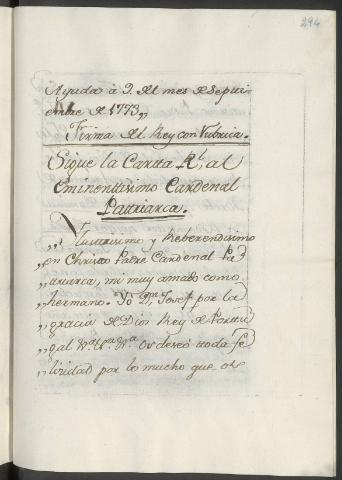 294
Ayuda à 9. del mes de Septi-
embre de 1773,,
Firma del Rey con rubrica.
Sigue la Carta Rl, al
Eminentisimo Cardenal
Patriarca.
Ylustrisimo y Reberendisimo
,, en Christo Padre Cardenal Pa
,, triarca, mi muy amado como
,, hermano. Yo Dn Josef por la
,, gracia de Dios Rey de Portu
,, gal &a &a &a Os deseo toda fe
,, licidad por lo mucho que os